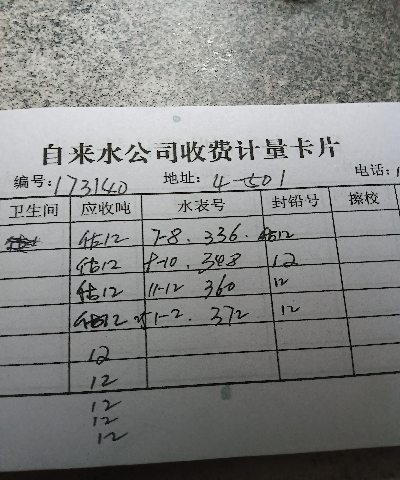 自来水公司收费计量卡片
编号:173140 地址: 4-501 电话:
卫生间 应收吨 水表号 封铅号 擦校
估12 7-8. 336. 估12
估12 8-10. 348 12
估12 11-12 360 12
估12 1-2. 372 12
12
12
12
12
12